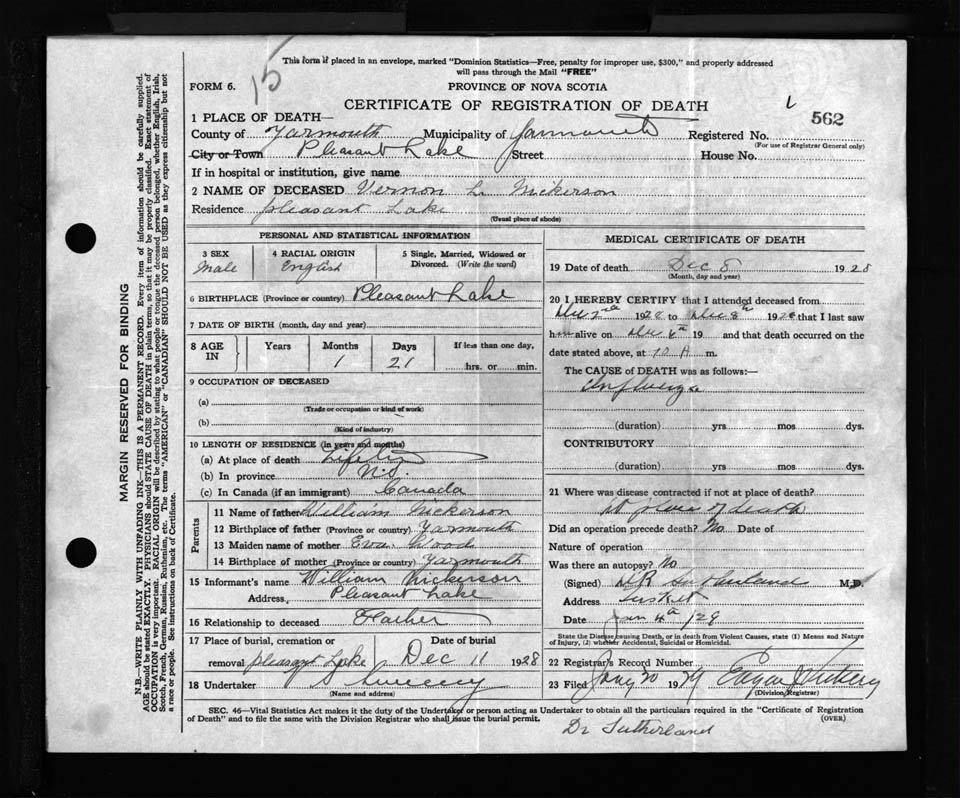 15
This form if placed in an envelope, marked "Dominion Statistics—Free, penalty for improper use, $300," and properly addressed
will pass through the Mail "FREE"
FORM 6.
PROVINCE OF NOVA SCOTIA
CERTIFICATE OF REGISTRATION OF DEATH
562
1 PLACE OF DEATH—
County of Yarmouth Municipality of Yarmouth Registered No.
(For use of Registrar General only)
City or Town Pleasant Lake Street House No.
If in hospital or institution, give name
2 NAME OF DECEASED Vernon L. Nickerson
Residence Pleasant Lake
(Usual place of abode)
PERSONAL AND STATISTICAL INFORMATION
3 SEX 4 RACIAL ORIGIN 5 Single, Married, Widowed or
Divorced. (Write the word)
Male English
6 BIRTHPLACE (Province or country) Pleasant Lake
7 DATE OF BIRTH (month, day and year)
8 AGE IN Years Months Days If less than one day,
1 21 hrs. or min.
9 OCCUPATION OF DECEASED
(a)
(Trade or occupation or kind of work)
(b)
(Kind of industry)
10 LENGTH OF RESIDENCE (in years and months)
(a) At place of death Life
(b) In province N.S.
(c) In Canada (if an immigrant) Canada
Parents
11 Name of father William Nickerson
12 Birthplace of father (Province or country) Yarmouth
13 Maiden name of mother Eva Wood
14 Birthplace of mother (Province or country) Yarmouth
15 Informant's name William Nickerson
Address, Pleasant Lake
16 Relationship to deceased Father
17 Place of burial, cremation or Date of burial
removal Pleasant Lake Dec 11 1928
18 Undertaker Sweeny
(Name and address)
MEDICAL CERTIFICATE OF DEATH
19 Date of death Dec 8 1928
(Month, day and year)
20 I HEREBY CERTIFY that I attended deceased from
Dec 2nd 1928 to Dec 8th 1928 that I last saw
him alive on Dec 6th 19 and that death occurred on the
date stated above, at 10 A m.
The CAUSE of DEATH was as follows:—
Influenza
(duration) yrs mos dys.
CONTRIBUTORY
(duration) yrs. mos. dys.
21 Where was disease contracted if not at place of death?
At place of death
Did an operation precede death? No. Date of
Nature of operation
Was there an autopsy? No
(Signed) Sutherland M.D.
Address Tusket
Date Jan 4th /29
State the Disease causing Death, or in death from Violent Causes, state (1) Means and Nature
of Injury, (2) whether Accidental, Suicidal or Homicidal.
22 Registrar's Record Number
23 Filed Jany 20 1929
(Division Registrar)
SEC. 46—Vital Statistics Act makes it the duty of the Undertaker or person acting as Undertaker to obtain all the particulars required in the "Certificate of Registration
of Death" and to file the same with the Division Registrar who shall issue the burial permit.
(OVER)
Dr Sutherland
MARGIN RESERVED FOR BINDING
N.B.—WRITE PLAINLY WITH UNFADING INK—THIS IS A PERMANENT RECORD. Every item of information should be carefully supplied.
AGE should be stated EXACTLY. PHYSICIANS should STATE CAUSE OF DEATH in plain terms, so that it may be properly classified. Exact statement of
OCCUPATION is very important. RACIAL ORIGIN will be described by stating to what people or tongue the deceased person belonged, whether English, Irish,
Scotch, French, German, Russian, Ruthenian, etc. The terms "AMERICAN" or "CANADIAN" SHOULD NOT BE USED as they express citizenship but not
a race or people. See instructions on back of Certificate.